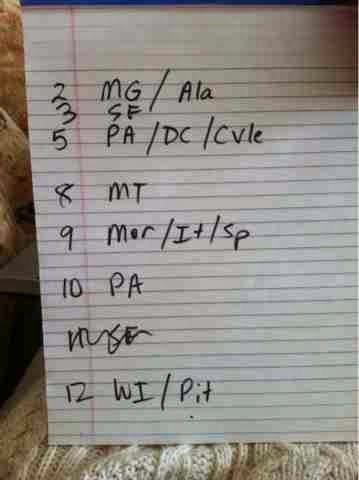 2 MG / Ala
3 SF
5 PA / DC / Cvle
8 MT
9 Mor / It / Sp
10 PA
12 WI / Pit